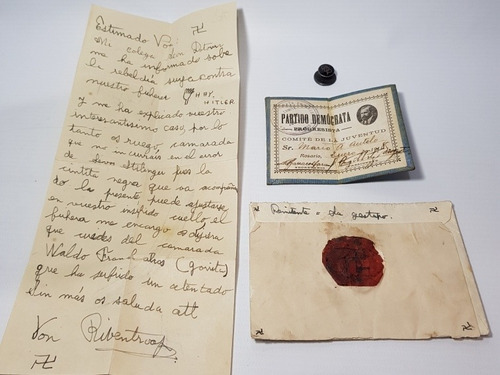 Estimado Von:
Mi colega Von
me ha informado sobre
la rebeldía suya contra
nuestro fuhrer
HITLER
y me ha explicado vuestro
interesantísimo caso, por lo
tanto os ruego, camarada
que no incurrais en el error
de
cintita negra que va
do la presente, puede ajustarse
en vuestro insípido cuello, el
fuhrer me encarga os dijera
que cuides del camarada
Waldo Frank
que ha sufrido un atentado
sin más os saluda att
Von Ribentroop
PARTIDO DEMÓCRATA
PROGRESISTA
COMITÉ DE LA JUVENTUD
Sr. Mario A. Antelo
Rosario,
Remitente: La gestapo.